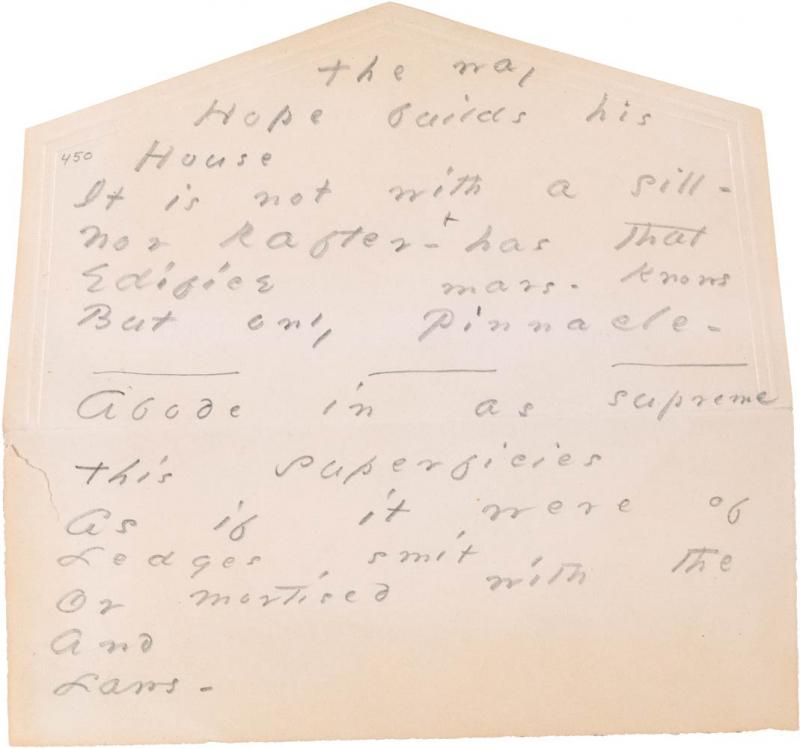 the way
Hope builds his
450 House
It is not with a sill -
nor Rafter - + has that
Edifice mars - knows
But only Pinnacle -
Abode in as supreme
this superficies
As if it were of
Ledges smit
Or mortised with the
And
Laws -